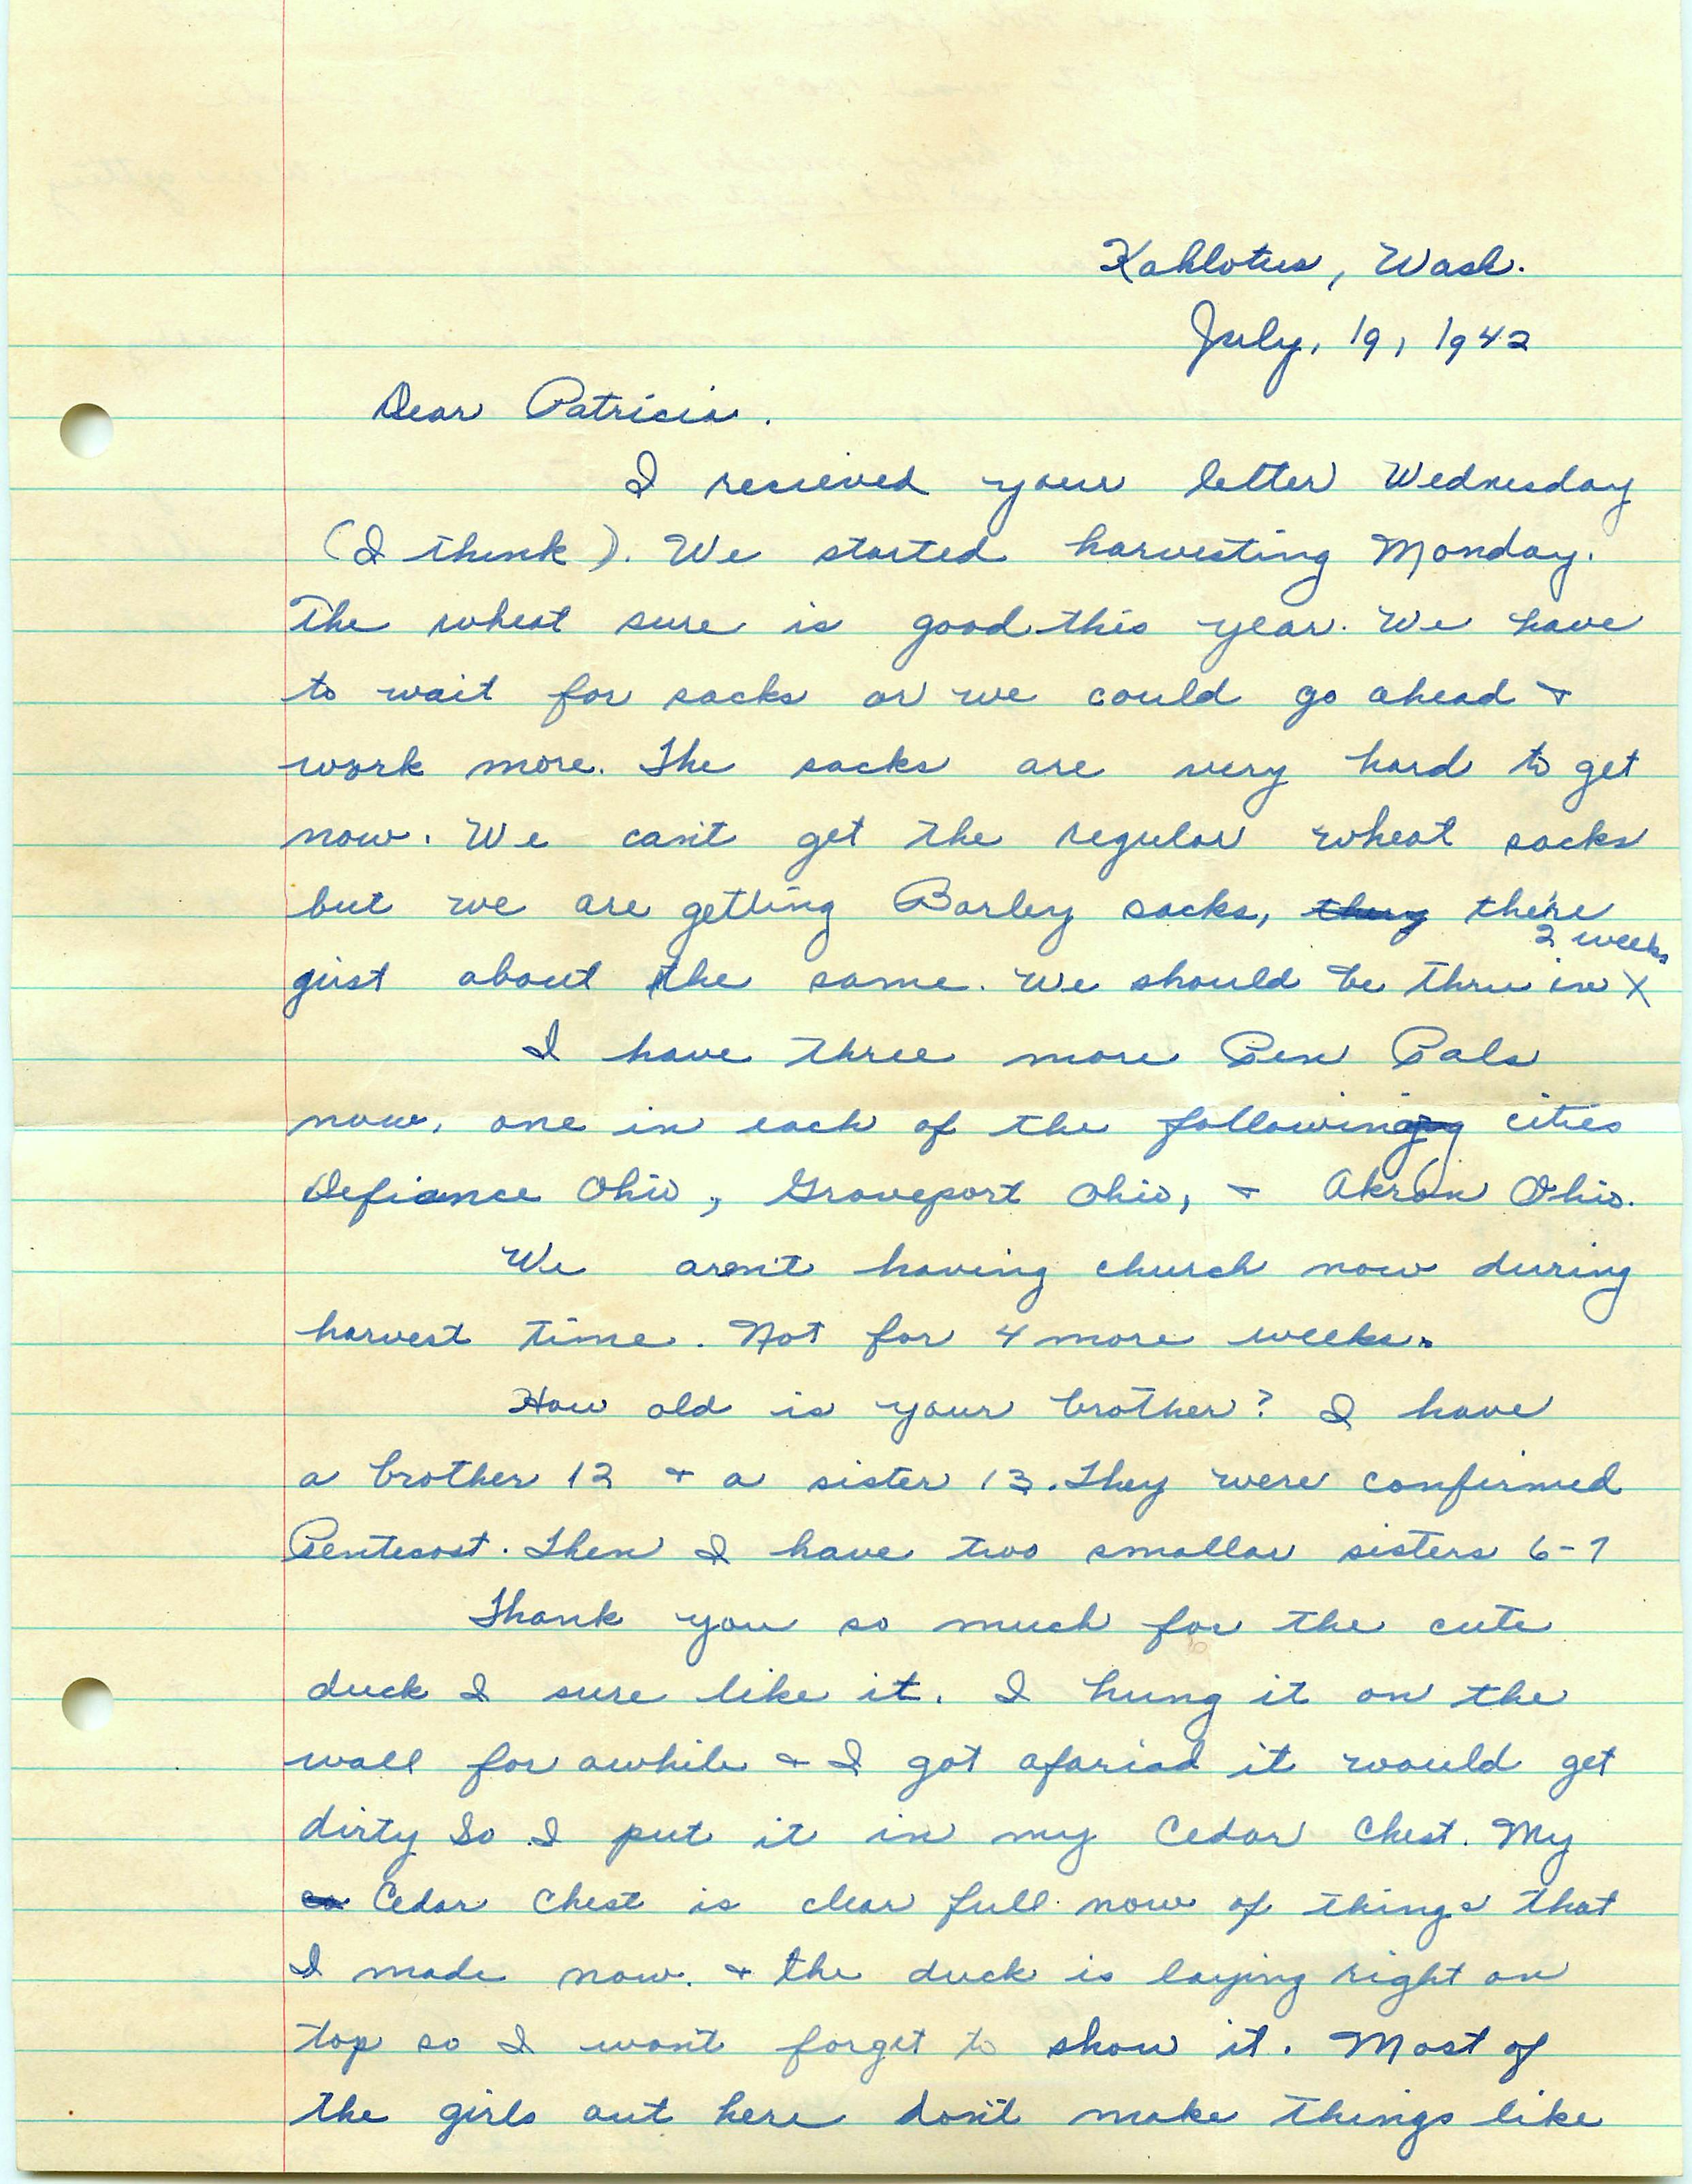 Kahlotus, Wash.
July, 19, 1942
Dear Patricia.
I recieved your letter Wednesday
(I think). We started harvesting Monday.
The wheat sure is good this year. We have
to wait for sacks or we could go ahead &
work more. The sacks are very hard to get
now. We can't get the regular wheat sacks
but we are getting Barley sacks, they there
2 weeks
just about the same. We should be thru in X
I have three more Pen Pals
now, one in each of the following cities
Defiance Ohio, Groveport Ohio, & Akron Ohio.
We aren't having church now during
harvest time. Not for 4 more weeks.
How old is your brother? I have
a brother 12 & a sister 13. They were confirmed
Pentecost. Then I have two smaller sisters 6-7
Thank you so much for the cute
duck I sure like it. I hung it on the
wall for awhile & I got afariad it would get
dirty So I put it in my Cedar Chest. My
Cedar Chest is clear full now of things that
I made now. & the duck is laying right on
top so I won't forget to show it. Most of
the girls out here don't make things like